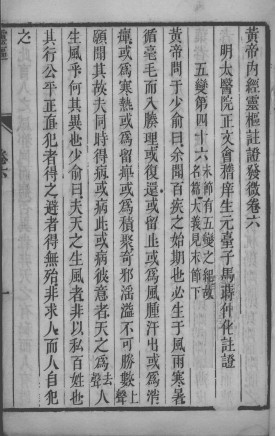 黃帝內經靈樞註證發微卷六
明太醫院正文會稽庠生元臺子馬蒔仲化註證
五變第四十六末節有五變之紀故名篇大義見末節下
黃帝問于少俞曰余聞百疾之始期也必生于風雨寒暑
循毫毛而入腠理或復還或留止或為風腫汗出或為消
癉或為寒熱或為留痺或為積聚奇邪淫溢不可勝數上聲
願聞其故夫同時得病或病此或病彼意者天之為去聲人
生風乎何其異也少俞曰夫天之生風者非以私百姓也
其行公平正直犯者得之避者得無殆非求人而人自犯
之
靈樞
卷六